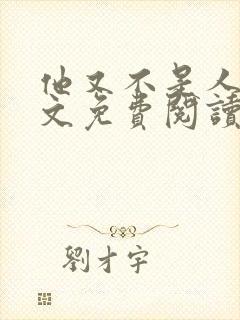 他又不是人
文免費閱讀
劉才宇